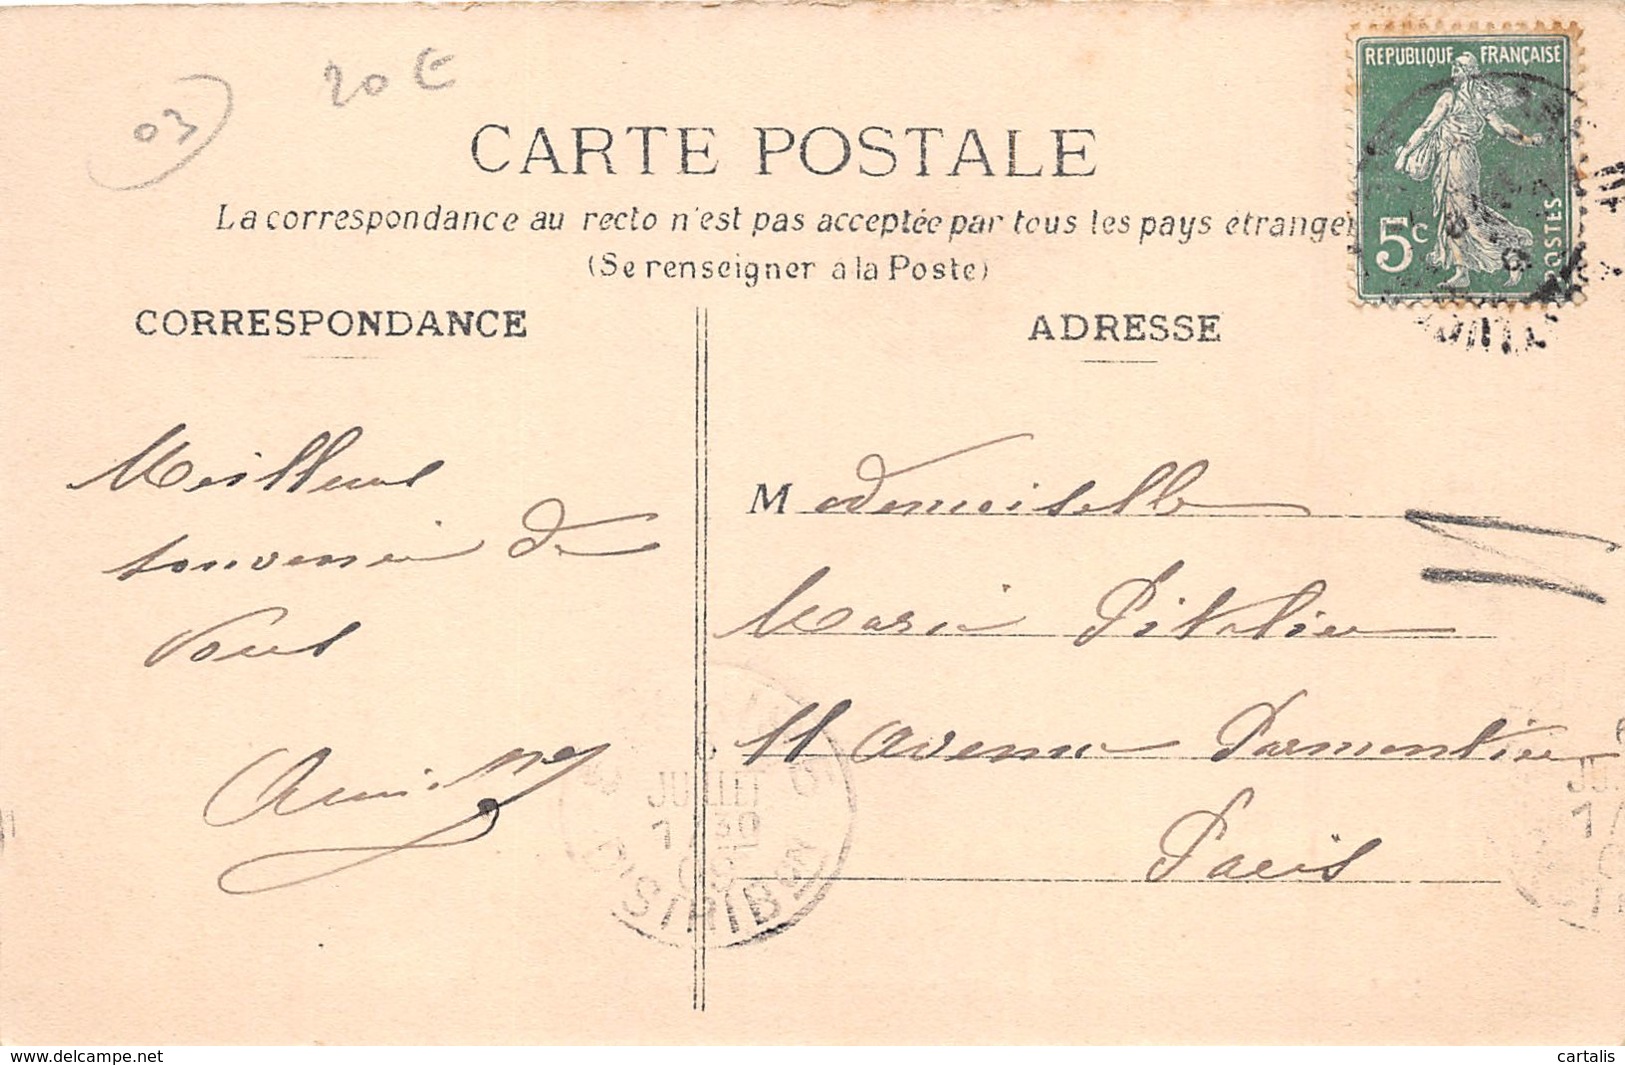 03
20 E
CARTE POSTALE
La correspondance au recto n'est pas acceptée par tous les pays étranger
(Se renseigner à la Poste)
REPUBLIQUE FRANÇAISE
5c
POSTES
CORRESPONDANCE
ADRESSE
Meilleurs
souvenir de
Vous
Mademoiselle
Marie Pitalier
11 Avenue Parmentier
Paris
JUILLET
DISTRIB
www.delcampe.net
cartalis